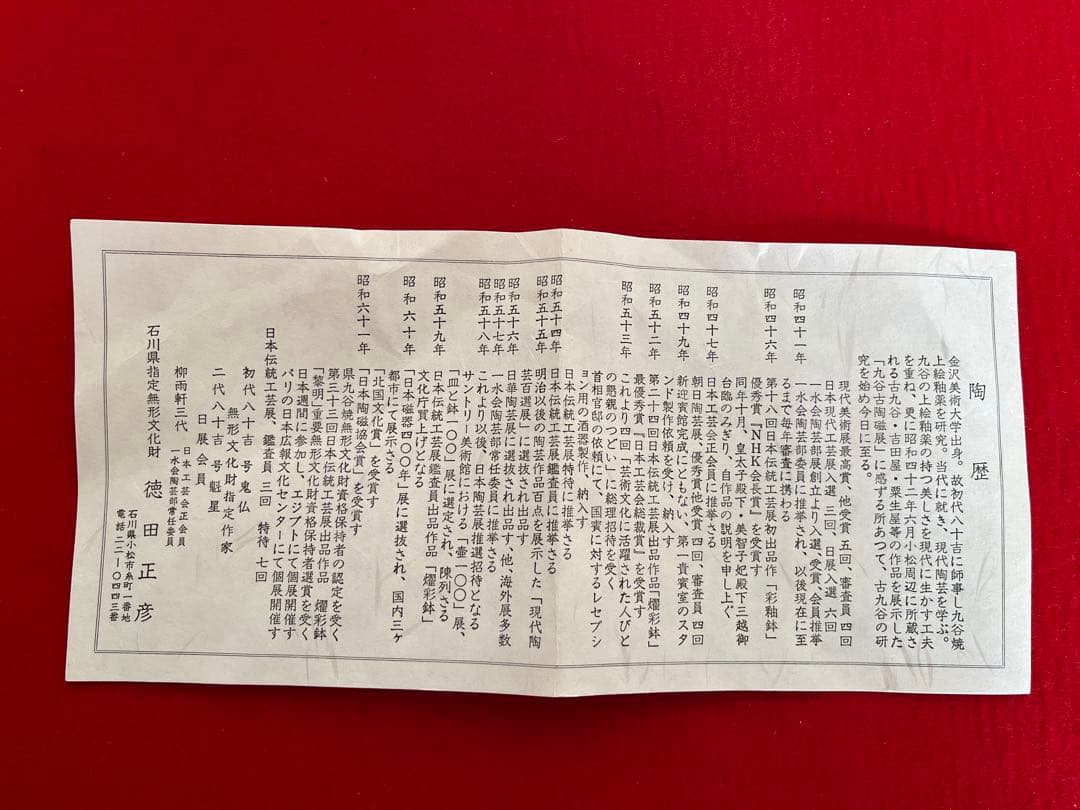 陶歴
金沢美術大学出身。故初代八十吉に師事し九谷焼
上絵釉薬を研究。当代に就き、現代陶芸を学ぶ。
九谷の上絵釉薬の持つ美しさを現代に生かす工夫
を重ね、更に昭和四十二年六月小松周辺に所蔵さ
れる古九谷・吉田屋・粟生屋等の作品を展示した
「九谷古陶磁展」に感ずる所あつて、古九谷の研
究を始め今日に至る。
現代美術展最高賞、他受賞 五回、審査員 四回
日本現代工芸展入選 三回、日展入選 六回
昭和四十一年 一水会陶芸部展創立より入選、受賞、会員推挙
一水会陶芸部委員に推挙され、以後現在に至
るまで毎年審査に携わる
昭和四十六年 第十八回日本伝統工芸展初出品作「彩釉鉢」
優秀賞『NHK会長賞』を受賞す
同年十月、皇太子殿下・美智子妃殿下三越御
台臨のみぎり、自作品の説明を申し上ぐ
昭和四十七年 日本工芸会正会員に推挙さる
朝日陶芸展、優秀賞他受賞 四回、審査員 四回
昭和四十九年 新迎賓館完成にともない、第一貴賓室のスタ
ンド製作依頼を受け、納入す
昭和五十二年 第二十四回日本伝統工芸展出品作品「燿彩鉢」
最優秀賞『日本工芸会総裁賞』を受賞す
昭和五十三年 これより四回「芸術文化に活躍された人びと
の懇親のつどい」に総理招待を受く
首相官邸の依頼にて、国賓に対するレセプシ
ョン用の酒器製作、納入す
日本伝統工芸展特待に推挙さる
昭和五十四年 日本伝統工芸展鑑査員に推挙さる
昭和五十五年 明治以後の陶芸作品百点を展示した「現代陶
芸百選展」に選抜され出品す
昭和五十六年 日華陶芸展に選抜され出品す、他、海外展多数
昭和五十七年 一水会陶芸部常任委員に推挙さる
昭和五十八年 これより以後、日本陶芸展推選招待となる
サントリー美術館における「壷一〇〇」展、
「皿と鉢一〇〇」展に選定され、陳列さる
昭和五十九年 日本伝統工芸展鑑査員出品作品「燿彩鉢」
文化庁買上げとなる
昭和六十年 「日本磁器四〇〇年」展に選抜され、国内三ヶ
都市にて展示さる
「北国文化賞」を受賞す
昭和六十一年 「日本陶磁協会賞」を受賞す
県九谷焼無形文化財資格保持者の認定を受く
第三十三回日本伝統工芸展出品作品 燿彩鉢
「黎明」重要無形文化財資格保持者選賞を受く
日本週間に参加し、エジプトにて個展開催す
パリの日本広報文化センターにて個展開催す
日本伝統工芸展、鑑査員 三回 特待 七回
初代八十吉 号 鬼仏
無形文化財指定作家
二代八十吉 号 魁星
日展会員
柳雨軒三代 日本工芸会正会員
一水会陶芸部常任委員
石川県指定無形文化財 徳田正彦
石川県小松市糸町一番地
電話 二二―〇四四三番